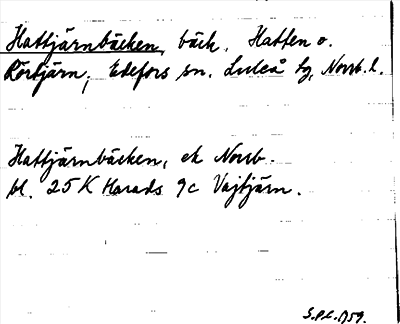 Hattjärnbäcken, bäck. Hatten o.
Rörtjärn; Edefors sn. Luleå tg, Norrb. l.
Hattjärnbäcken, ek Norrb.
bl. 25 K Harads 9c Vajtjärn.
S.P.C. 1959.